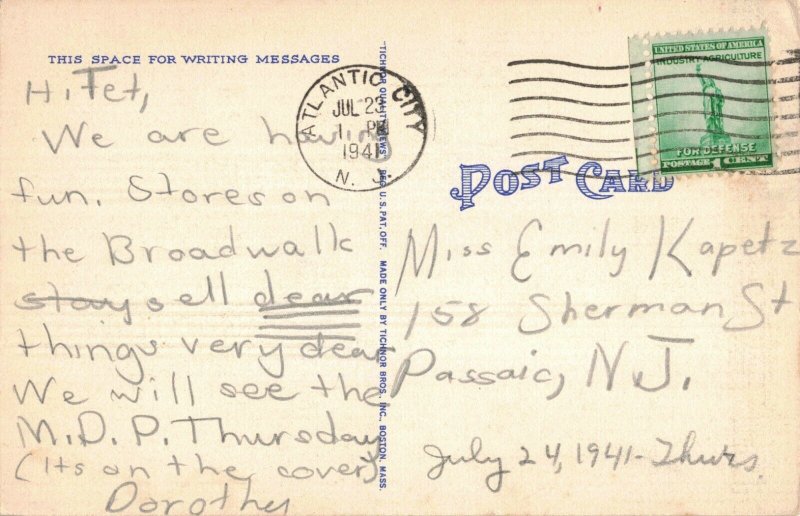 THIS SPACE FOR WRITING MESSAGES
Hi Tet,
We are having
fun. Stores on
the Broadwalk
stay sell dear
things very dear
We will see the
M.D.P. Thursday
(Its on the cover)
Dorothy
TICHNOR QUALITY VIEWS REG. U.S. PAT. OFF. MADE ONLY BY TICHNOR BROS., INC., BOSTON, MASS.
ATLANTIC CITY
JUL 23
1 PM
1941
N. J.
UNITED STATES OF AMERICA
INDUSTRY AGRICULTURE
FOR DEFENSE
POSTAGE 1 CENT
POST CARD
Miss Emily Kapetz
158 Sherman St
Passaic, N.J.
July 24, 1941-Thurs.